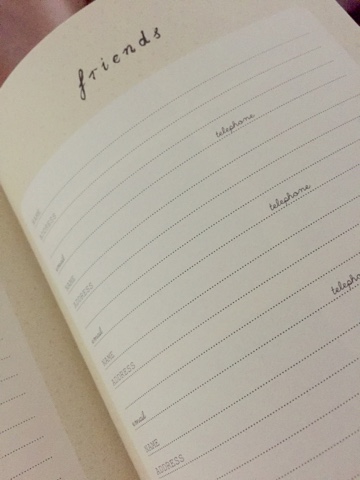 friends
NAME
ADDRESS
telephone
email
NAME
ADDRESS
telephone
email
NAME
ADDRESS
telepho
email
NAME
ADDRESS